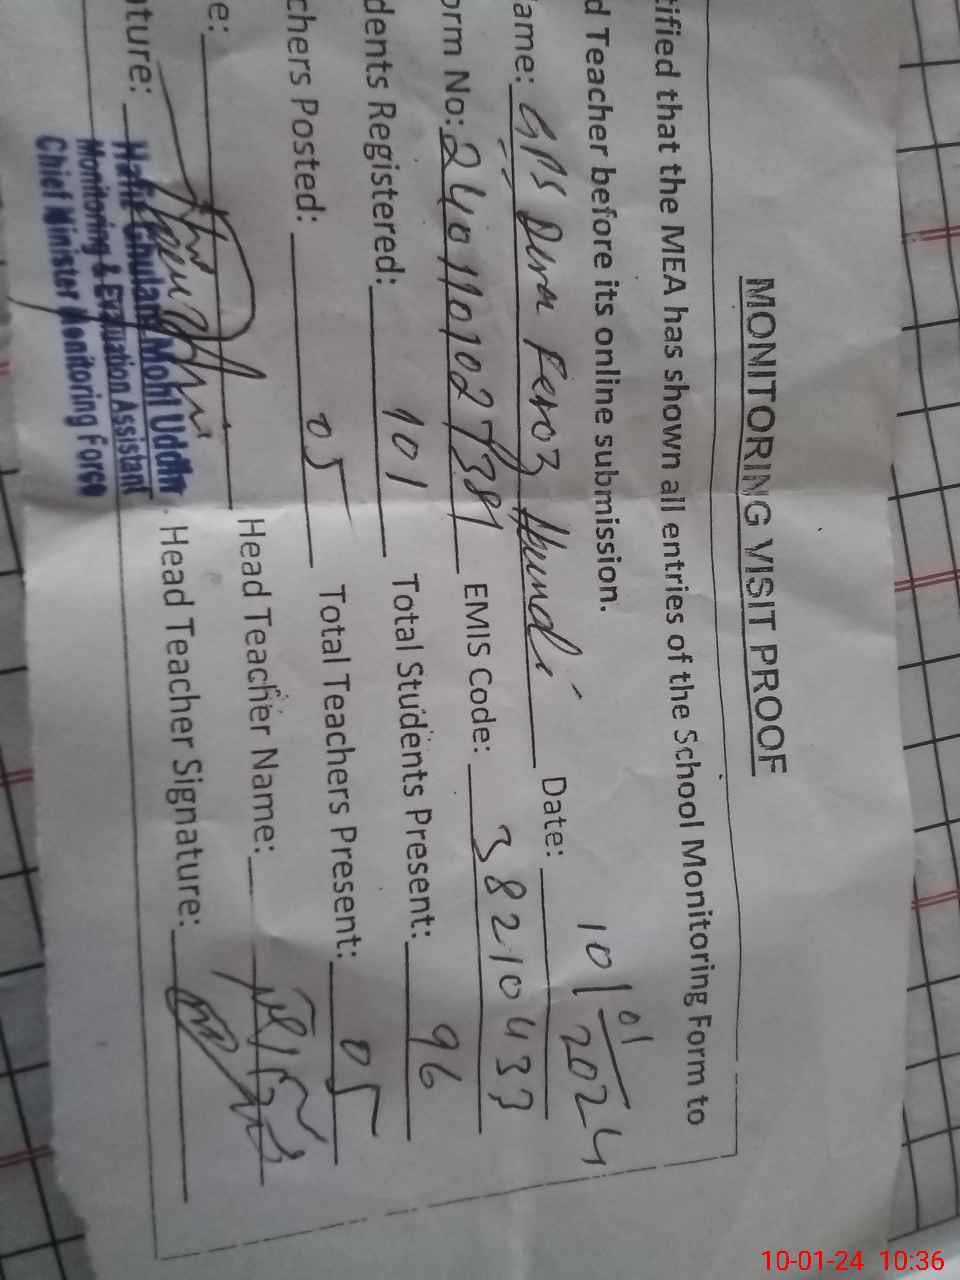 MONITORING VISIT PROOF
tified that the MEA has shown all entries of the School Monitoring Form to
d Teacher before its online submission.
ame: GPS Dera Feroz Date: 10/01/2024
orm No: 2401101027381 EMIS Code: 38210433
dents Registered: 101 Total Students Present: 96
chers Posted: 05 Total Teachers Present: 05
e: Head Teacher Name:
ature: Head Teacher Signature:
Hafiz Ghulam Mohi Uddin
Monitoring & Evaluation Assistant
Chief Minister Monitoring Force
10-01-24 10:36